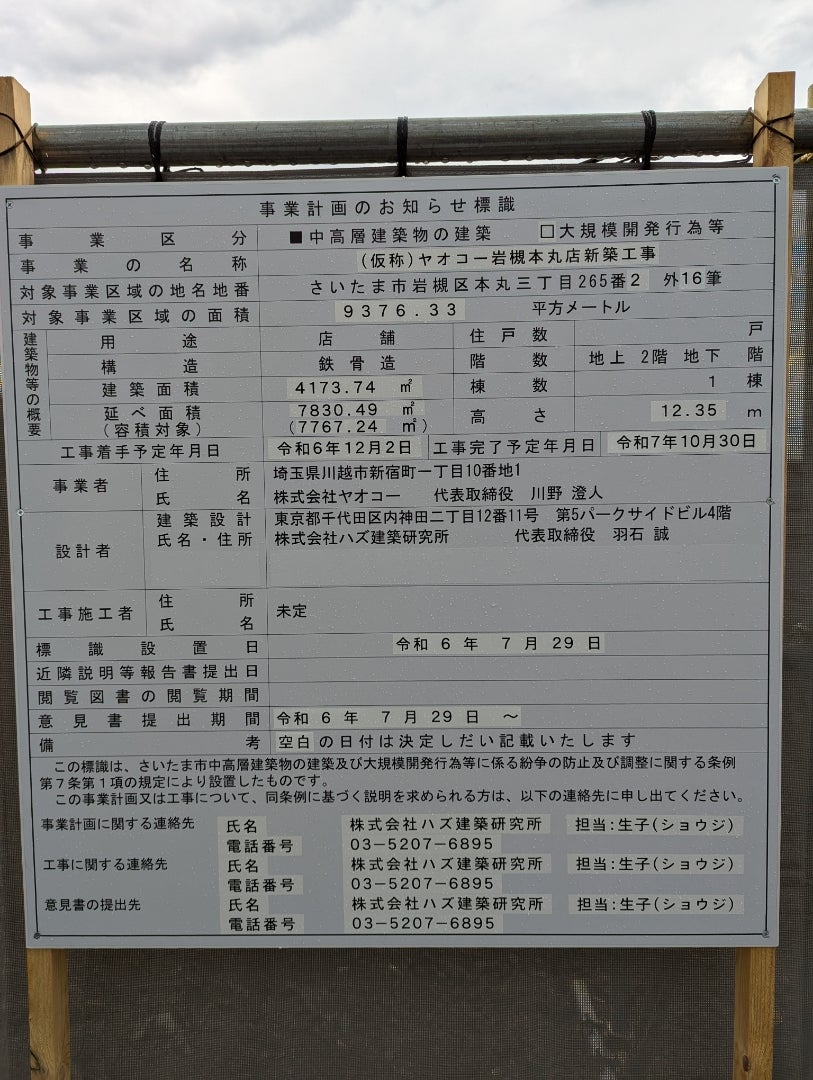 事業計画のお知らせ標識
事業区分 ■中高層建築物の建築 □大規模開発行為等
事業の名称 (仮称)ヤオコー岩槻本丸店新築工事
対象事業区域の地名地番 さいたま市岩槻区本丸三丁目265番2 外16筆
対象事業区域の面積 9376.33 平方メートル
建築物等の概要
用途 店舗 住戸数 戸
構造 鉄骨造 階数 地上 2階 地下 階
建築面積 4173.74 ㎡ 棟数 1 棟
延べ面積 7830.49 ㎡ 高さ 12.35 m
(容積対象) (7767.24 ㎡)
工事着手予定年月日 令和6年12月2日 工事完了予定年月日 令和7年10月30日
事業者 住所 埼玉県川越市新宿町一丁目10番地1
氏名 株式会社ヤオコー 代表取締役 川野 澄人
設計者 建築設計 東京都千代田区内神田二丁目12番11号 第5パークサイドビル4階
氏名・住所 株式会社ハズ建築研究所 代表取締役 羽石 誠
工事施工者 住所 未定
氏名
標識設置日 令和 6 年 7 月 29 日
近隣説明等報告書提出日
閲覧図書の閲覧期間
意見書提出期間 令和 6 年 7 月 29 日 ~
備考 空白の日付は決定しだい記載いたします
この標識は、さいたま市中高層建築物の建築及び大規模開発行為等に係る紛争の防止及び調整に関する条例
第7条第1項の規定により設置したものです。
この事業計画又は工事について、同条例に基づく説明を求められる方は、以下の連絡先に申し出てください。
事業計画に関する連絡先 氏名 株式会社ハズ建築研究所 担当:生子(ショウジ)
電話番号 03-5207-6895
工事に関する連絡先 氏名 株式会社ハズ建築研究所 担当:生子(ショウジ)
電話番号 03-5207-6895
意見書の提出先 氏名 株式会社ハズ建築研究所 担当:生子(ショウジ)
電話番号 03-5207-6895